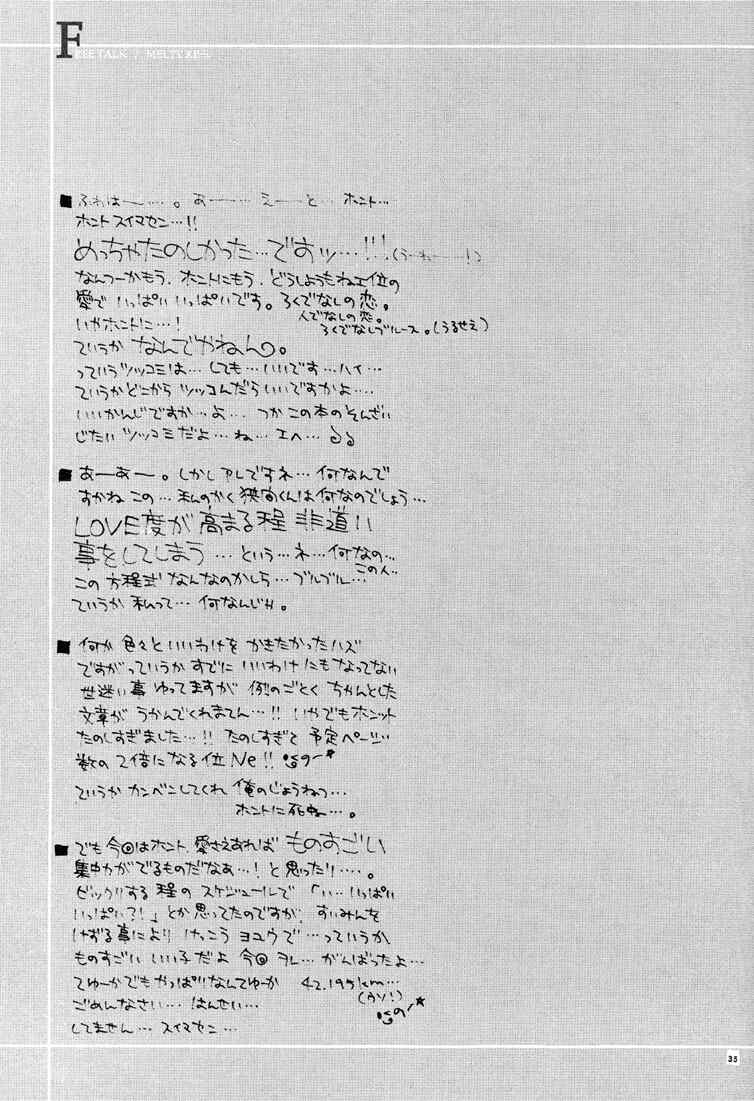 FREE TALK / MELTY
■ふわは〜…。あ〜…えーと… ホント…
ホントスイマセン…!!
めっちゃたのしかった…ですッ…!!!(うーねーー!)
なんつーかもう、ホントにもう、どうしようもねェ位の
愛で いっぱい いっぱいです。ろくでなしの恋。
人でなしの恋。
いやホントに…! ろくでなしブルース。(うるせえ)
ていうか なんでやねん。
っていうツッコミは…しても…いいです…ハイ…
ていうかどこから ツッコんだらいいですかよ…
いいかんじですか…よ… つか この本のそんざい
じたい ツッコミだよ…ね…エヘ…
■あーあー。しかしアレですネ…何なんで
すかね この…私のかく くんは何なのでしょう…
LOVE度が 高まる程 非道い
事をしてしまう …という…ネ…何なの…
この人…
この 方程式 なんなのかしら…ブルブル…
ていうか 私って…何なんじゃ。
■何か 色々と いいわけを かきたかったハズ
ですがっていうか すでに いいわけにもなってない
世迷い事 ゆってますが 例のごとく ちゃんとした
文章が うかんでくれません…!! いやでもホンット
たのしすぎました…!! たのしすぎて 予定ページ
数の 2倍になる位 Ne!!
ていうか カンベンしてくれ 俺のじょうねつ…
ホントに死ね…。
■でも 今回はホント、愛さえあれば ものすごい
集中力がでるものだなぁ…!と思ったり…。
ビックリする程の スケジュールで 「い…いっぱい
いっぱい?!」とか思ってたのですが、すいみんを
けずる事により けっこう ヨユウで…っていうか
ものすごい いい子だよ 今回 オレ…がんばったよ…
てゆーかでもやっぱりなんてゆーか 42.195km…
(ウソ!)
ごめんなさい… はんせい…
してません… スイマセン…
35